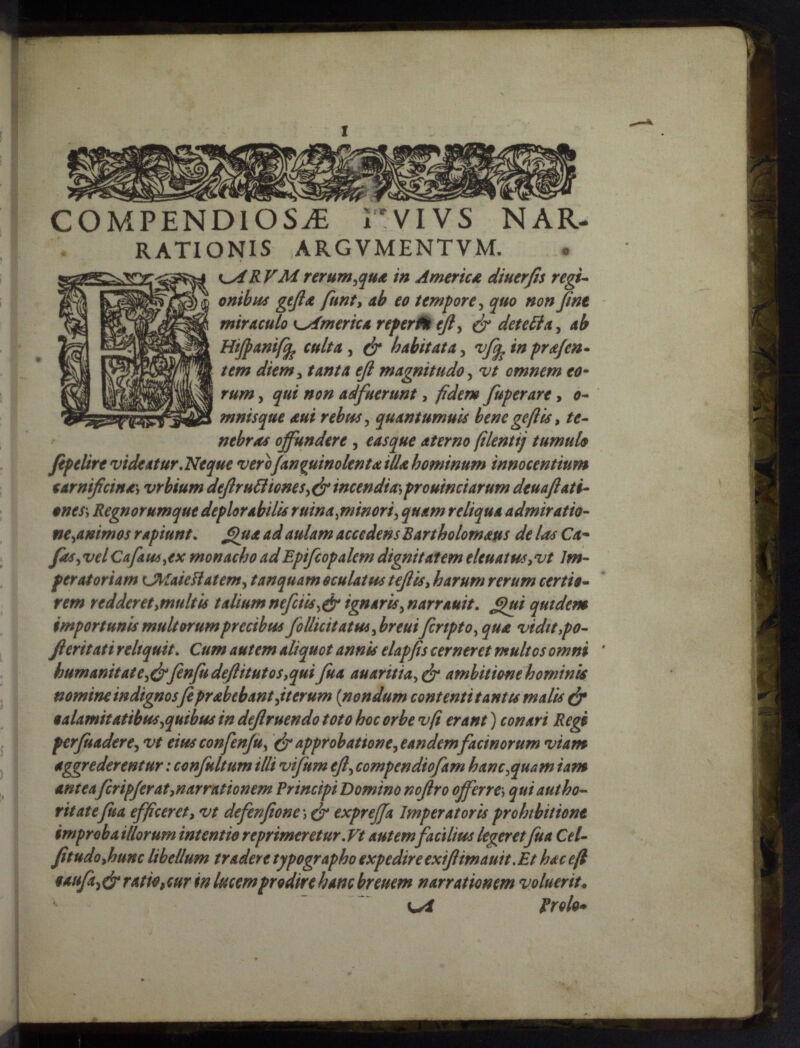 1
COMPENDIOSÆ HVIVS NAR-
RATIONIS ARGVMENTVM.
EARVM rerum,quæ in Americæ diuersis regi-
onibus gestæ sunt, ab eo tempore, quo non sine
miraculo America reperta est, & detecta, ab
Hispanisq; culta, & habitata, vsq; in præsen-
tem diem, tanta est magnitudo, vt omnem eo-
rum, qui non adfuerunt, fidem superare, o-
mnisque æui rebus, quantumuis bene gestis, te-
nebras offundere, easque æterno silentij tumulo
sepelire videatur. Neque verò sanguinolentæ illæ hominum innocentium
carnificinæ; vrbium destructiones,& incendia; prouinciarum deuastati-
ones; Regnorumque deplorabilis ruina,minori, quam reliqua admiratio-
ne,animos rapiunt. Quæ ad aulam accedens Bartholomæus de las Ca-
sas, vel Casaus,ex monacho ad Episcopalem dignitatem eleuatus,vt Im-
peratoriam Maiestatem, tanquam oculatus testis, harum rerum certio-
rem redderet,multis talium nesciis,& ignaris, narrauit. Qui quidem
importunis multorum precibus sollicitatus, breui scripto, quæ vidit,po-
steritati reliquit. Cum autem aliquot annis elapsis cerneret multos omni
humanitate,& sensu destitutos,qui sua auaritia, & ambitione hominis
nomine indignos se præbebant,iterum (nondum contenti tantis malis &
calamitatibus,quibus in destruendo toto hoc orbe vsi erant) conari Regi
persuadere, vt eius consensu, & approbatione,eandem facinorum viam
aggrederentur: consultum illi visum est, compendiosam hanc,quam iam
antea scripserat,narrationem Principi Domino nostro offerre; qui autho-
ritate sua efficeret, vt defensione; & expressa Imperatoris prohibitione
improba illorum intentio reprimeretur. Vt autem facilius legeret sua Cel-
situdo,hunc libellum tradere typographo expedire existimauit. Et hæc est
causa,& ratio,cur in lucem prodire hanc breuem narrationem voluerit.
A Prolo-